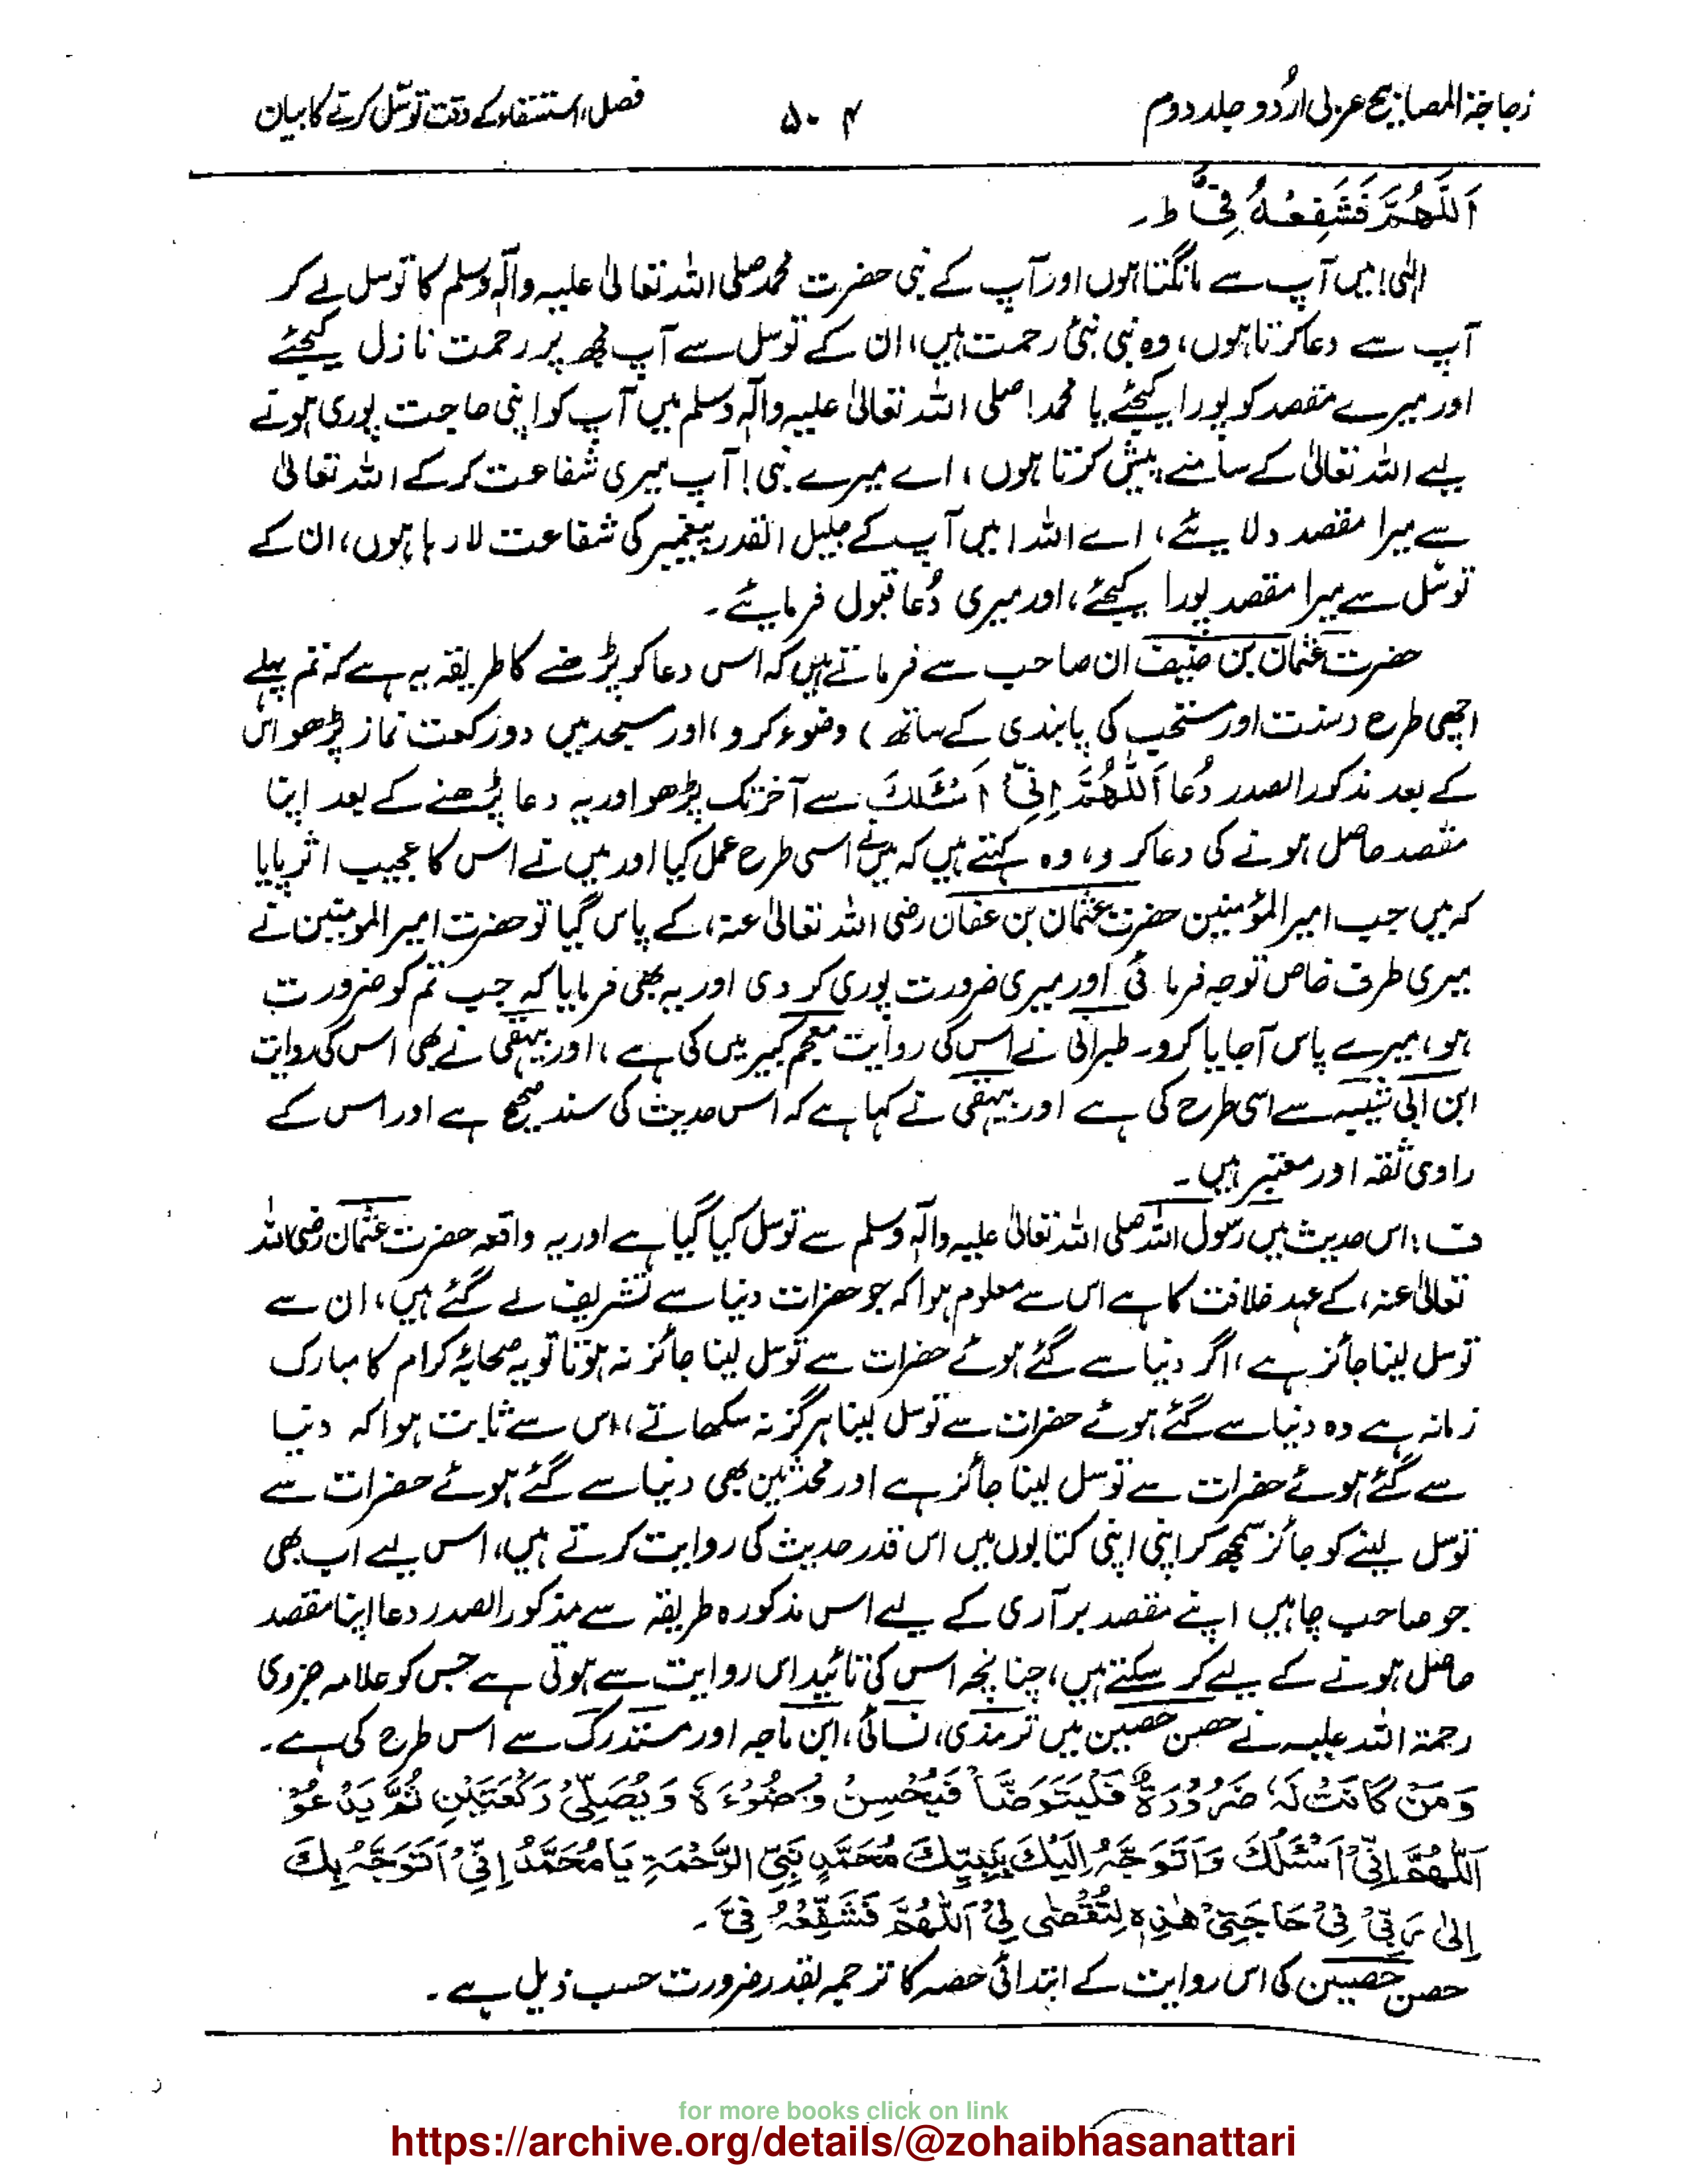 زجاجۃ المصابیح عربی اُردو جلد دوم
۵۰۴
فصل، استسقاء کے وقت توسّل کرنے کا بیان
اَللّٰھُمَّ فَشَفِّعْہُ فِیَّ ط۔
الٰہی! میں آپ سے مانگتا ہوں اور آپ کے نبی حضرت محمد صلی اللہ تعالیٰ علیہ وآلہٖ وسلم کا توسل لے کر
آپ سے دعا کرتا ہوں، وہ نبی نبیٔ رحمت ہیں، ان کے توسل سے آپ مجھ پر رحمت نازل کیجئے
اور میرے مقصد کو پورا کیجئے یا محمد! صلی اللہ تعالیٰ علیہ وآلہٖ وسلم میں آپ کو اپنی حاجت پوری ہونے
لیے اللہ تعالیٰ کے سامنے پیش کرتا ہوں، اے میرے نبی! آپ میری شفاعت کر کے اللہ تعالیٰ
سے میرا مقصد دلایئے، اے اللہ! میں آپ کے جلیل القدر پیغمبر کی شفاعت لا رہا ہوں، ان کے
توسّل سے میرا مقصد پورا کیجئے، اور میری دُعا قبول فرمایئے۔
حضرت عثمان بن حنیف ان صاحب سے فرماتے ہیں کہ اس دعا کو پڑھنے کا طریقہ یہ ہے کہ تم پہلے
اچھی طرح (سنت اور مستحب کی پابندی کے ساتھ) وضوء کرو، اور مسجد میں دو رکعت نماز پڑھو اس
کے بعد مذکور الصدر دُعا اَللّٰھُمَّ اِنِّیْ اَسْئَلُکَ سے آخر تک پڑھو اور یہ دعا پڑھنے کے بعد اپنا
مقصد حاصل ہونے کی دعا کرو، وہ کہتے ہیں کہ میں نے اسی طرح عمل کیا اور میں نے اس کا عجیب اثر پایا
کہ میں جب امیر المؤمنین حضرت عثمان بن عفان رضی اللہ تعالیٰ عنہ، کے پاس گیا تو حضرت امیر المومنین نے
میری طرف خاص توجہ فرمائی اور میری ضرورت پوری کر دی اور یہ بھی فرمایا کہ جب تم کو ضرورت
ہو، میرے پاس آجایا کرو۔ طبرانی نے اس کی روایت معجم کبیر میں کی ہے، اور بیہقی نے بھی اس کی روایت
ابن ابی شیبہ سے اسی طرح کی ہے اور بیہقی نے کہا ہے کہ اس حدیث کی سند صحیح ہے اور اس کے
راوی ثقہ اور معتبر ہیں۔
ف: اس حدیث میں رسول اللہ صلی اللہ تعالیٰ علیہ وآلہٖ وسلم سے توسل کیا گیا ہے اور یہ واقعہ حضرت عثمان رضی اللہ
تعالیٰ عنہ، کے عہد خلافت کا ہے اس سے معلوم ہوا کہ جو حضرات دنیا سے تشریف لے گئے ہیں، ان سے
توسل لینا جائز ہے، اگر دنیا سے گئے ہوئے حضرات سے توسل لینا جائز نہ ہوتا تو یہ صحابۂ کرام کا مبارک
زمانہ ہے وہ دنیا سے گئے ہوئے حضرات سے توسل لینا ہرگز نہ سکھاتے، اس سے ثابت ہوا کہ دنیا
سے گئے ہوئے حضرات سے توسل لینا جائز ہے اور محدثین بھی دنیا سے گئے ہوئے حضرات سے
توسل لینے کو جائز سمجھ کر اپنی اپنی کتابوں میں اس قدر حدیث کی روایت کرتے ہیں، اس لیے اب بھی
جو صاحب چاہیں اپنے مقصد برآری کے لیے اس مذکورہ طریقہ سے مذکور الصدر دعا اپنا مقصد
حاصل ہونے کے لیے کر سکتے ہیں، چنانچہ اس کی تائید اس روایت سے ہوتی ہے جس کو علامہ جزری
رحمۃ اللہ علیہ نے حصن حصین میں ترمذی، نسائی، ابن ماجہ اور مستدرک سے اس طرح کی ہے۔
وَمَنْ کَانَتْ لَہٗ ضَرُوْرَۃٌ فَلْیَتَوَضَّأْ فَیُحْسِنُ وُضُوْءَہٗ وَیُصَلِّیْ رَکْعَتَیْنِ ثُمَّ یَدْعُوْ
اَللّٰھُمَّ اِنِّیْ اَسْئَلُکَ وَاَتَوَجَّہُ اِلَیْکَ بِنَبِیِّکَ مُحَمَّدٍ نَبِیِّ الرَّحْمَۃِ یَا مُحَمَّدُ اِنِّیْ اَتَوَجَّہُ بِکَ
اِلٰی رَبِّیْ فِیْ حَاجَتِیْ ھٰذِہٖ لِتُقْضٰی لِیْ اَللّٰھُمَّ فَشَفِّعْہُ فِیَّ۔
حصن حصین کی اس روایت کے ابتدائی حصہ کا ترجمہ بقدر ضرورت حسب ذیل ہے۔
for more books click on link
https://archive.org/details/@zohaibhasanattari